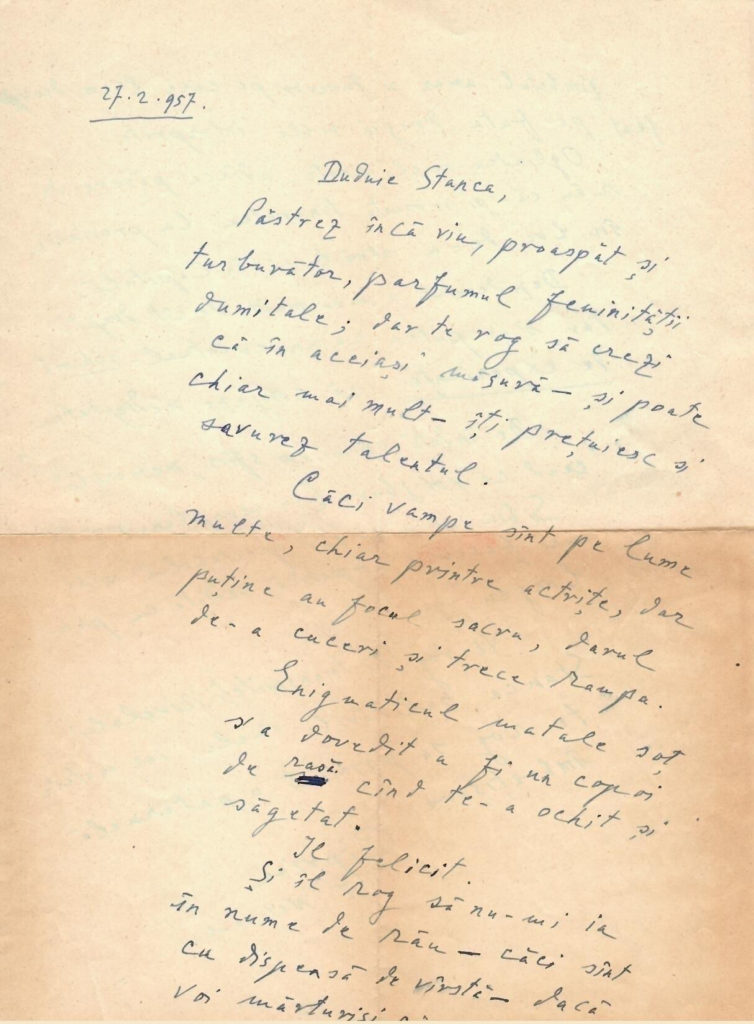 27.2.957.
Duduie Stanca,
Păstrez încă viu, proaspăt și
turburător, parfumul feminității
dumitale; dar te rog să crezi
că în aceiași măsură – și poate
chiar mai mult – îți prețuiesc și
savurez talentul.
Căci vampe sînt pe lume
multe, chiar printre actrițe, dar
puține au focul sacru, darul
de-a cuceri și trece rampa.
Enigmaticul matale soț
s'a dovedit a fi un copoi
de rasă cînd te-a ochit și
săgetat.
Il felicit.
Și îl rog să nu-mi ia
în nume de rău – căci sînt
cu dispensă de vîrstă – dacă
voi mărturisi